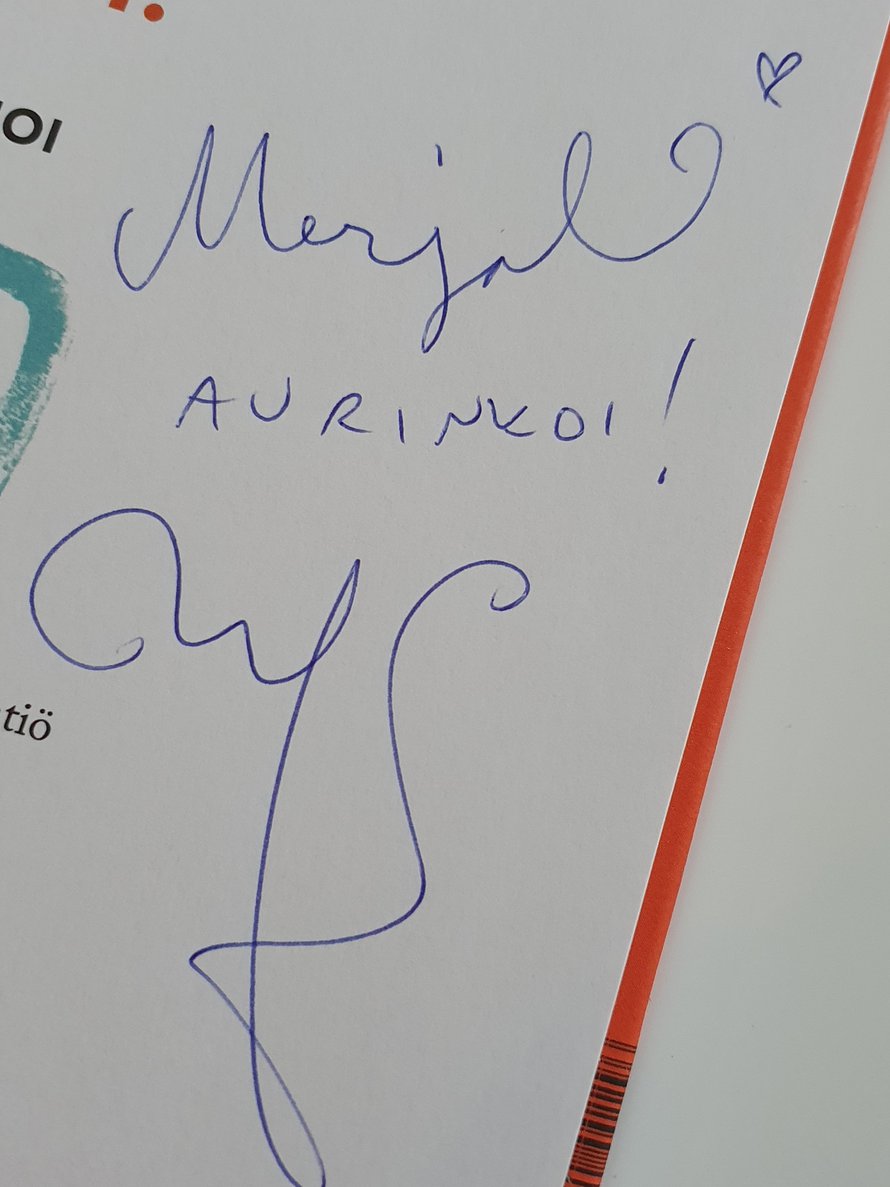 OI
Merjal
AURINKOI!
tiö